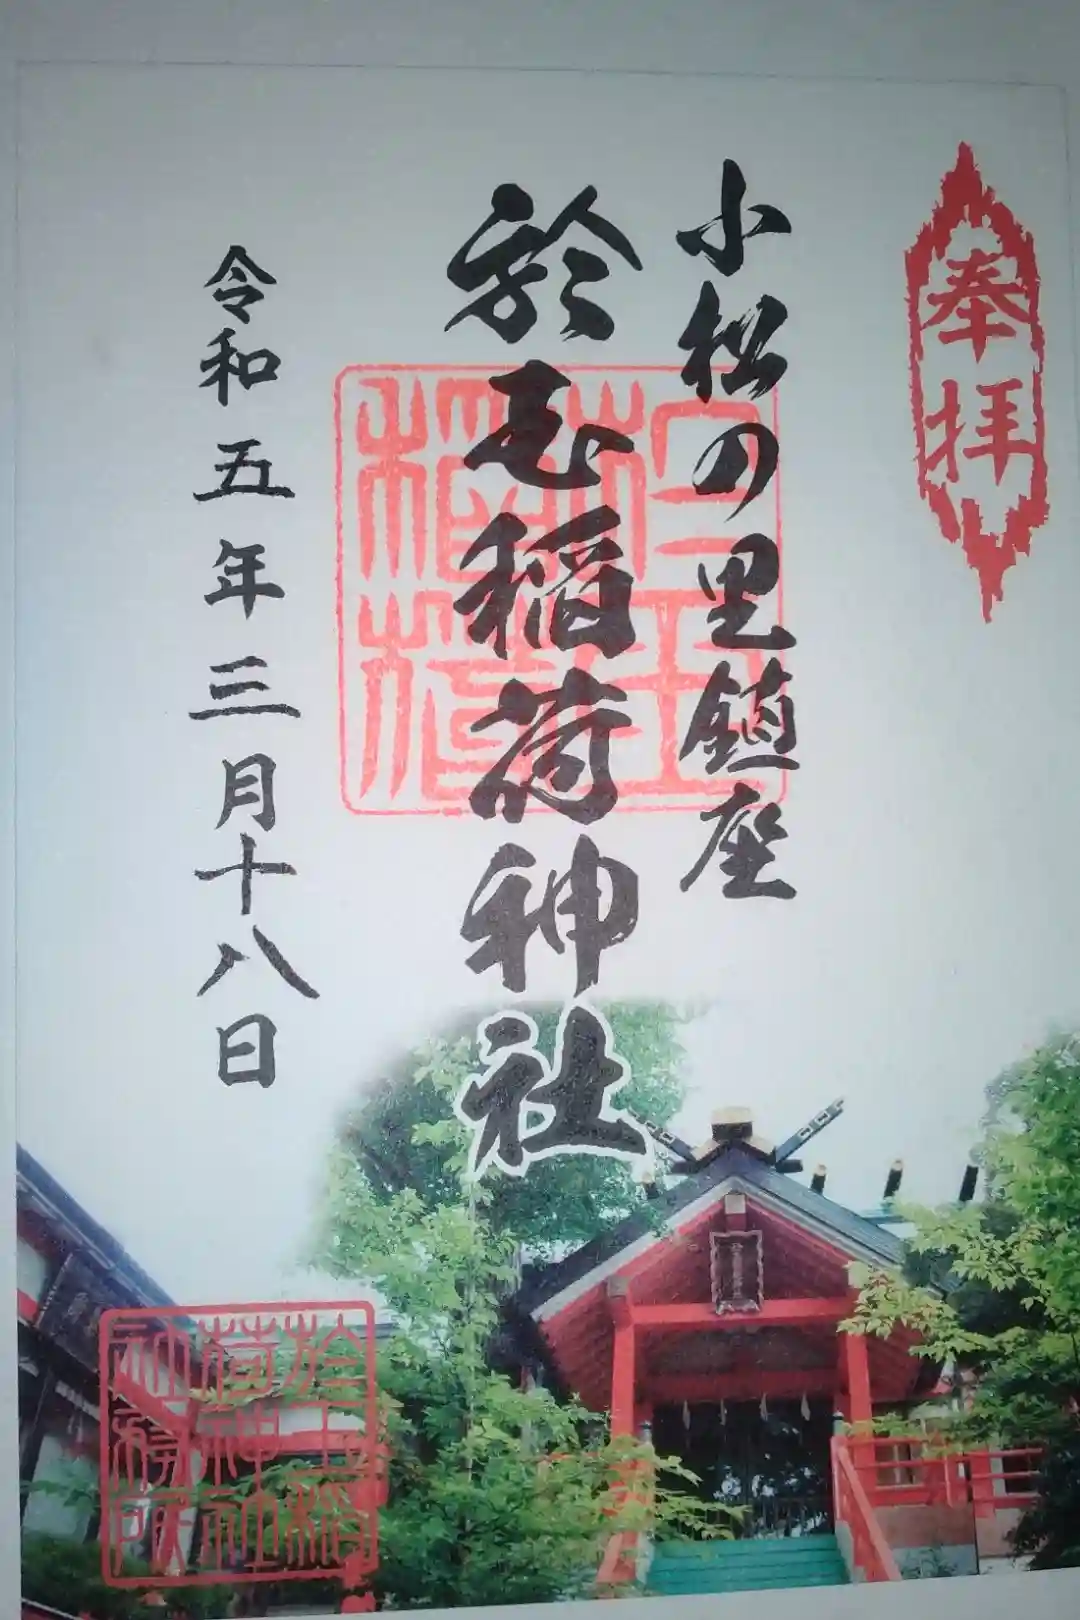 奉拝
小松の里鎮座
於玉稲荷神社
令和五年三月十八日
於玉稲
荷神社
社務所